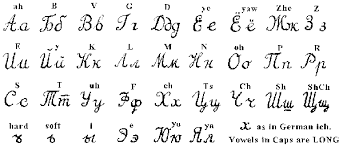 ah B V G D ye yaw Zhe Z
Аа Бб Вв Гг Дд Ее Ёё Жж Зз
E Y K L M N oh P R
Ии Йй Кк Лл Мм Нн Оо Пп Рр
S T uh F ch Ts Ch Sh ShCh
Сс Тт Уу Фф Хх Цц Чч Шш Щщ
hard soft I e yu ya x as in German ich.
ъ ь ы Ээ Юю Яя Vowels in Caps are LONG